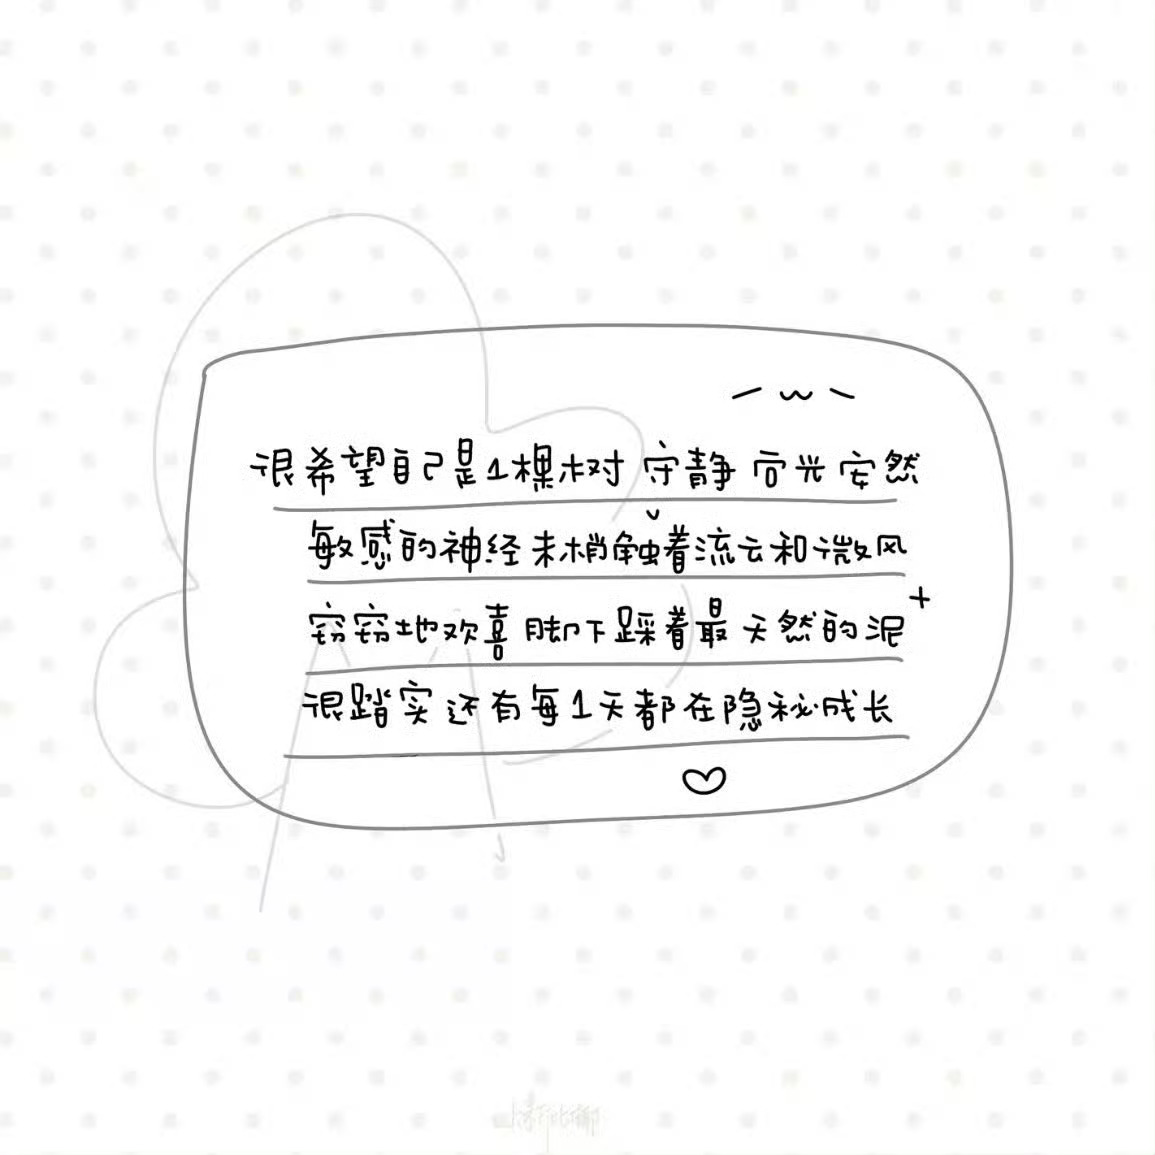 很希望自己是1棵树 守静 向光 安然
敏感的神经末梢触着流云和微风
窃窃地欢喜 脚下踩着最天然的泥
很踏实 还有每1天都在隐秘成长